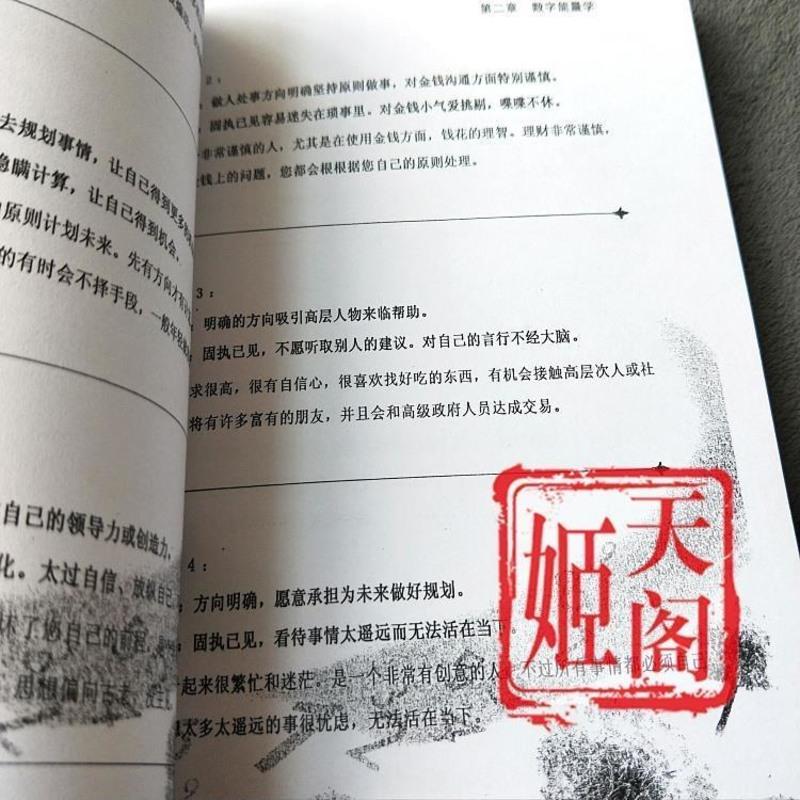 去规划事情，让自己得到更多的
隐瞒计算，让自己得到机会。
原则计划未来。先有方向才有
的有时会不择手段，一般年轻
自己的领导力或创造力。
化。太过自信、放纵自己
思想偏向古老，
第二章 数字能量学
2：
做人处事方向明确坚持原则做事，对金钱沟通方面特别谨慎。
固执已见容易迷失在琐事里。对金钱小气爱挑剔，喋喋不休。
非常谨慎的人，尤其是在使用金钱方面，钱花的理智。理财非常谨慎，
钱上的问题，您都会根根据您自己的原则处理。
3：
明确的方向吸引高层人物来临帮助。
固执已见，不愿听取别人的建议。对自己的言行不经大脑。
求很高，很有自信心，很喜欢找好吃的东西，有机会接触高层次人或社
将有许多富有的朋友，并且会和高级政府人员达成交易。
4：
：方向明确，愿意承担为未来做好规划。
：固执已见，看待事情太遥远而无法活在当下。
起来很繁忙和迷茫。是一个非常有创意的人，不过所有事情都必须自己
太多太遥远的事很忧虑，无法活在当下。
天阁
姬